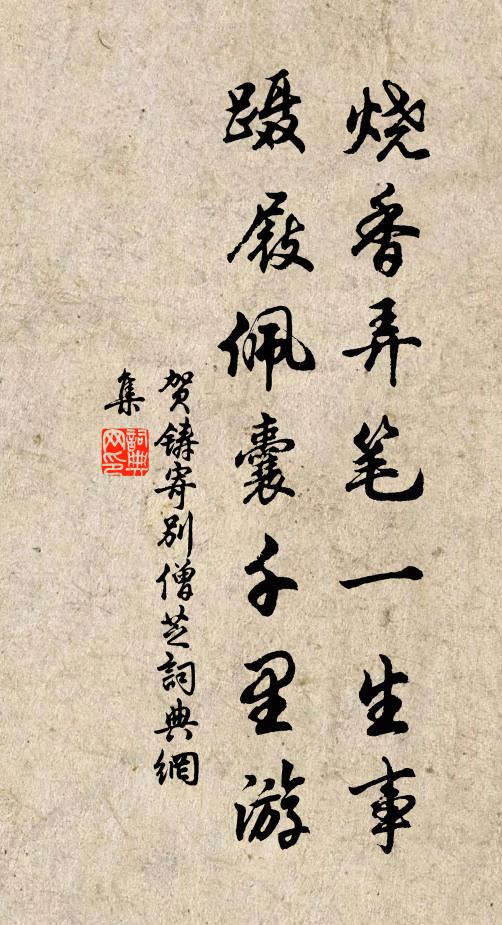 烧香弄笔一生事
蹑屐佩囊千里游
贺鑄寄别僧芝詞典網
集
詞典
网印